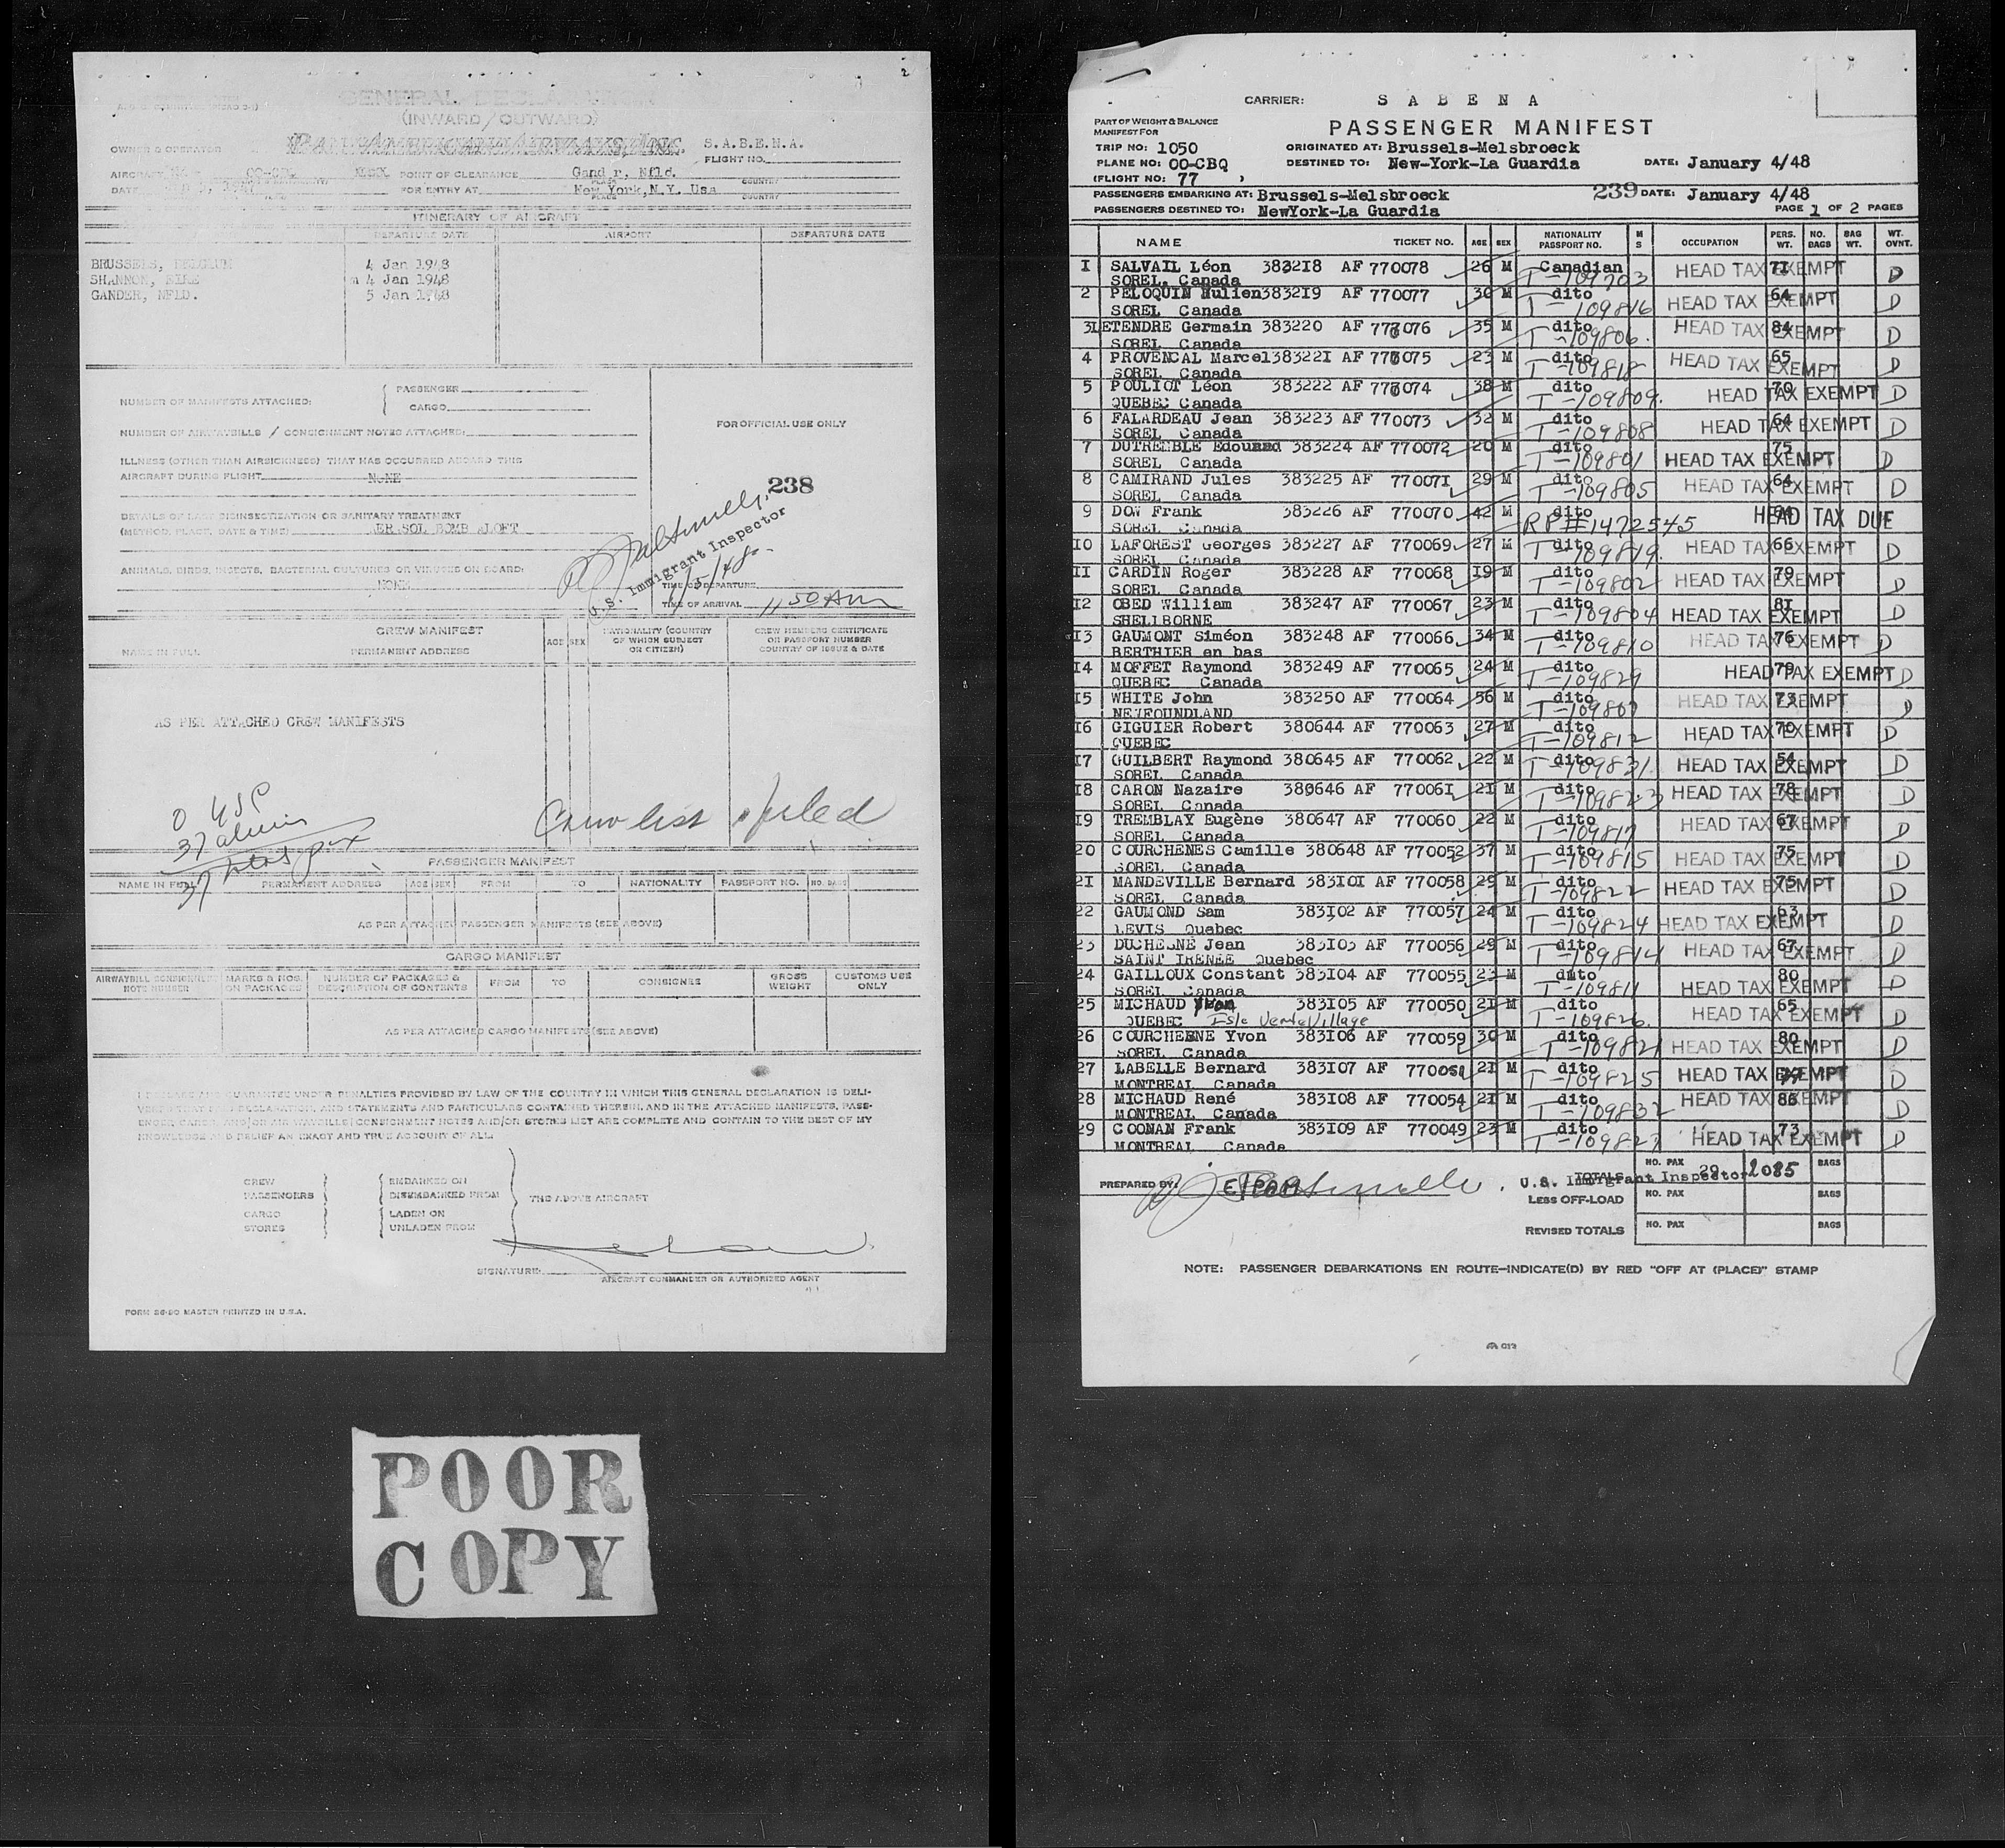 2
GENERAL DECLARATION
(INWARD/OUTWARD)
OWNER & OPERATOR PAN AMERICAN AIRWAYS, INC. S.A.B.E.N.A.
FLIGHT NO.
AIRCRAFT OO-CBQ POINT OF CLEARANCE Gand r, Nfld.
PLACE COUNTRY
DATE FOR ENTRY AT New York,N.Y. Usa
PLACE COUNTRY
ITINERARY OF AIRCRAFT
DEPARTURE DATE AIRPORT DEPARTURE DATE
BRUSSELS, BELGIUM 4 Jan 1948
SHANNON, EIRE 4 Jan 1948
GANDER, NFLD. 5 Jan 1948
NUMBER OF MANIFESTS ATTACHED: PASSENGER
CARGO
NUMBER OF AIRWAYBILLS / CONSIGNMENT NOTES ATTACHED:
FOR OFFICIAL USE ONLY
ILLNESS (OTHER THAN AIRSICKNESS) THAT HAS OCCURRED ABOARD THIS
AIRCRAFT DURING FLIGHT NONE
238
DETAILS OF LAST DISINSECTIZATION OR SANITARY TREATMENT
(METHOD, PLACE, DATE & TIME) ER SOL BOMB ALOFT
U.S. Immigrant Inspector
1/5/48
ANIMALS, BIRDS, INSECTS, BACTERIAL CULTURES OR VIRUSES ON BOARD:
NONE
TIME OF DEPARTURE
TIME OF ARRIVAL 11 50 AM
CREW MANIFEST
NAME IN FULL PERMANENT ADDRESS AGE SEX NATIONALITY (COUNTRY OF WHICH SUBJECT OR CITIZEN) CREW MEMBERS CERTIFICATE OR PASSPORT NUMBER COUNTRY OF ISSUE & DATE
AS PER ATTACHED CREW MANIFESTS
0 USP
37 aliens
37 total pax
Crew list filed
PASSENGER MANIFEST
NAME IN FULL PERMANENT ADDRESS AGE SEX FROM TO NATIONALITY PASSPORT NO. NO. BAGS
AS PER ATTACHED PASSENGER MANIFESTS (SEE ABOVE)
CARGO MANIFEST
AIRWAYBILL CONSIGNMENT NOTE NUMBER MARKS & NOS. ON PACKAGES NUMBER OF PACKAGES & DESCRIPTION OF CONTENTS FROM TO CONSIGNEE GROSS WEIGHT CUSTOMS USE ONLY
AS PER ATTACHED CARGO MANIFESTS (SEE ABOVE)
I DECLARE AND GUARANTEE UNDER PENALTIES PROVIDED BY LAW OF THE COUNTRY IN WHICH THIS GENERAL DECLARATION IS DELI-
VERED THAT THIS DECLARATION, AND STATEMENTS AND PARTICULARS CONTAINED THEREIN, AND IN THE ATTACHED MANIFESTS, PASS-
ENGER CARGO, AND/OR AIR WAYBILLS/CONSIGNMENT NOTES AND/OR STORES LIST ARE COMPLETE AND CONTAIN TO THE BEST OF MY
KNOWLEDGE AND BELIEF AN EXACT AND TRUE ACCOUNT OF ALL.
CREW EMBARKED ON
PASSENGERS DISEMBARKED FROM THE ABOVE AIRCRAFT
CARGO LADEN ON
STORES UNLADEN FROM
SIGNATURE:
AIRCRAFT COMMANDER OR AUTHORIZED AGENT
FORM 26-90 MASTER PRINTED IN U.S.A.
POOR
COPY
CARRIER: S A B E N A
PART OF WEIGHT & BALANCE
MANIFEST FOR
PASSENGER MANIFEST
TRIP NO: 1050 ORIGINATED AT: Brussels-Melsbroeck
PLANE NO: OO-CBQ DESTINED TO: New-York-La Guardia DATE: January 4/48
(FLIGHT NO: 77 )
PASSENGERS EMBARKING AT: Brussels-Melsbroeck 239 DATE: January 4/48
PASSENGERS DESTINED TO: NewYork-La Guardia PAGE 1 OF 2 PAGES
NAME TICKET NO. AGE SEX NATIONALITY PASSPORT NO. M S OCCUPATION PERS. WT. NO. BAGS BAG WT. WT. OVNT.
I SALVAIL Léon 3832I8 AF 770078 26 M Canadian HEAD TAX EXEMPT 7I D
SOREL, Canada T-109703
2 PELOQUIN Hulien3832I9 AF 770077 30 M dito HEAD TAX EXEMPT 64 D
SOREL Canada T-109816
3LETENDRE Germain 383220 AF 770076 35 M dito HEAD TAX EXEMPT 84 D
SOREL Canada T-109806.
4 PROVENCAL Marcel38322I AF 770075 23 M dito HEAD TAX EXEMPT 65 D
SOREL Canada T-109818
5 POULIOT Léon 383222 AF 770074 38 M dito HEAD TAX EXEMPT 70 D
QUEBEC Canada T-109809.
6 FALARDEAU Jean 383223 AF 770073 32 M dito HEAD TAX EXEMPT 64 D
SOREL Canada T-109808
7 DUTREMBLE Edouard 383224 AF 770072 20 M dito HEAD TAX EXEMPT 75 D
SOREL Canada T-109801
8 CAMIRAND Jules 383225 AF 77007I 29 M dito HEAD TAX EXEMPT 64 D
SOREL Canada T-109805
9 DOW Frank 383226 AF 770070 42 M dito HEAD TAX DUE
SOREL Canada RP#1472545
I0 LAFOREST Georges 383227 AF 770069 27 M dito HEAD TAX EXEMPT 66 D
SOREL Canada T-109819.
II CARDIN Roger 383228 AF 770068 I9 M dito HEAD TAX EXEMPT 79 D
SOREL Canada T-109802
I2 OBED William 383247 AF 770067 23 M dito HEAD TAX EXEMPT 8I D
SHELLBORNE T-109804
I3 GAUMONT Siméon 383248 AF 770066 34 M dito HEAD TAX EXEMPT 76 D
BERTHIER en bas T-109810
I4 MOFFET Raymond 383249 AF 770065 24 M dito HEAD TAX EXEMPT 79 D
QUEBEC Canada T-109829
I5 WHITE John 383250 AF 770064 56 M dito HEAD TAX EXEMPT 73 D
NEWFOUNDLAND T-109807
I6 GIGUIER Robert 380644 AF 770063 27 M dito HEAD TAX EXEMPT 70 D
QUEBEC T-109812
I7 GUILBERT Raymond 380645 AF 770062 22 M dito HEAD TAX EXEMPT 54 D
SOREL Canada T-109831.
I8 CARON Nazaire 380646 AF 77006I 2I M dito HEAD TAX EXEMPT 78 D
SOREL Canada T-109823
I9 TREMBLAY Eugène 380647 AF 770060 22 M dito HEAD TAX EXEMPT 67 D
SOREL Canada T-109817
20 COURCHENES Camille 380648 AF 770052 37 M dito HEAD TAX EXEMPT 75 D
SOREL Canada T-109815
2I MANDEVILLE Bernard 383I0I AF 770058 29 M dito HEAD TAX EXEMPT 75 D
SOREL Canada T-109822
22 GAUMOND Sam 383I02 AF 770057 24 M dito HEAD TAX EXEMPT 63 D
LEVIS Quebec T-109824
23 DUCHESNE Jean 383I03 AF 770056 29 M dito HEAD TAX EXEMPT 67 D
SAINT IRENEE Quebec T-109814
24 GAILLOUX Constant 383I04 AF 770055 23 M dito HEAD TAX EXEMPT 80 D
SOREL Canada T-109811
25 MICHAUD Yvon 383I05 AF 770050 2I M dito HEAD TAX EXEMPT 65 D
QUEBEC Isle Verte Village T-109826.
26 COURCHESNE Yvon 383I06 AF 770059 30 M dito HEAD TAX EXEMPT 80 D
SOREL Canada T-109821
27 LABELLE Bernard 383I07 AF 77005I 2I M dito HEAD TAX EXEMPT D
MONTREAL Canada T-109825
28 MICHAUD René 383I08 AF 770054 2I M dito HEAD TAX EXEMPT 86 D
MONTREAL Canada T-109832
29 COONAN Frank 383I09 AF 770049 23 M dito HEAD TAX EXEMPT 73 D
MONTREAL Canada T-109827
PREPARED BY: TOTALS NO. PAX 29 2085 BAGS
U.S. Immigrant Inspector
LESS OFF-LOAD NO. PAX BAGS
REVISED TOTALS NO. PAX BAGS
NOTE: PASSENGER DEBARKATIONS EN ROUTE-INDICATE(D) BY RED "OFF AT (PLACE)" STAMP